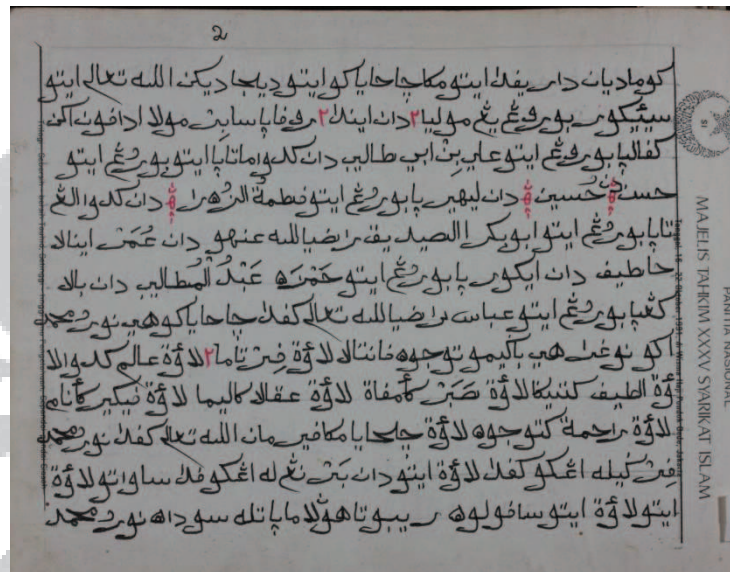 2
كوماديان داريفد ايتو مكا چاحايا كو ايتو ديجاديكن الله تعالى ايتو
سيئيكور بوروڠ يڠ موليا٢ دان اينده٢ روفاپا سابرمولا ادافون اكن
كفالاپا بوروڠ ايتو علي بن ابي طالب دان كدوا ماتاپا ايتو بوروڠ ايتو
حسن دان حسين دان ليهيرپا بوروڠ ايتو فطمة الزهرا دان كدوا لڠ
تاپا بوروڠ ايتو ابو بكر الصيديق رضيا الله عنهو دان عمر
حاطيف دان ايكورپا بوروڠ ايتو حمزه عبد المطاليب دان بالا
كڠپا بوروڠ ايتو عباس رضيا الله تعالى كفد چاحايا كو هي نور محمد
اكو نوغرهي باكيمو توجوه فانتالا لاؤة فرتاما٢ لاؤة عالم كدوا لا
ؤة لطيف كتيكا لاؤة صبر كأمفاة لاؤة عقل كاليما لاؤة فيكير كأنام
لاؤة راحمة كتوجوه لاؤة چاحايا مكا فيرمان الله تعالى كفد نور محمد
فركيله اڠكو كفد لاؤة ايتو دان برنڠ له اڠكو فد ساواتو لاؤة
ايتو لاؤة ايتو سافولوه ريبو تاهون لاماپا تله سوداه نور محمد
MAJELIS TAHKIM XXXV SYARIKAT ISLAM
PANITIA NASIONAL